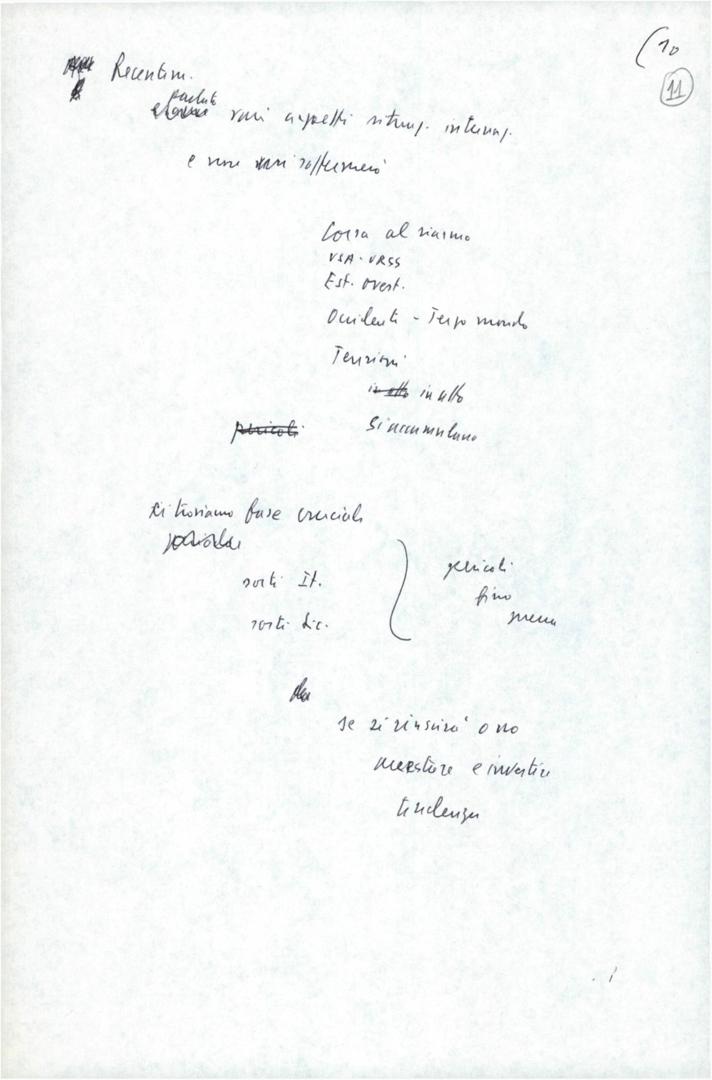 (10
11
Recentem.
parlato
vari aspetti situaz. internaz.
e non mi soffermerò
Corsa al riarmo
USA-URSS
Est. ovest.
Occidente - Terzo mondo
Tensioni
in atto in atto
pericoli
Si accumulano
Ci troviamo fase cruciale
sorti It.
sorti
pericoli
fino
guerra
se si riuscirà o no
arrestare e invertire
tendenza